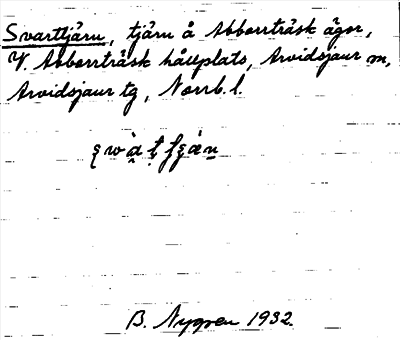 Svarttjärn, tjärn å Abborrträsk ägor,
V. Abborrträsk hållplats, Arvidsjaur sn,
Arvidsjaur tg, Norrb. l.
B. Nygren 1932.